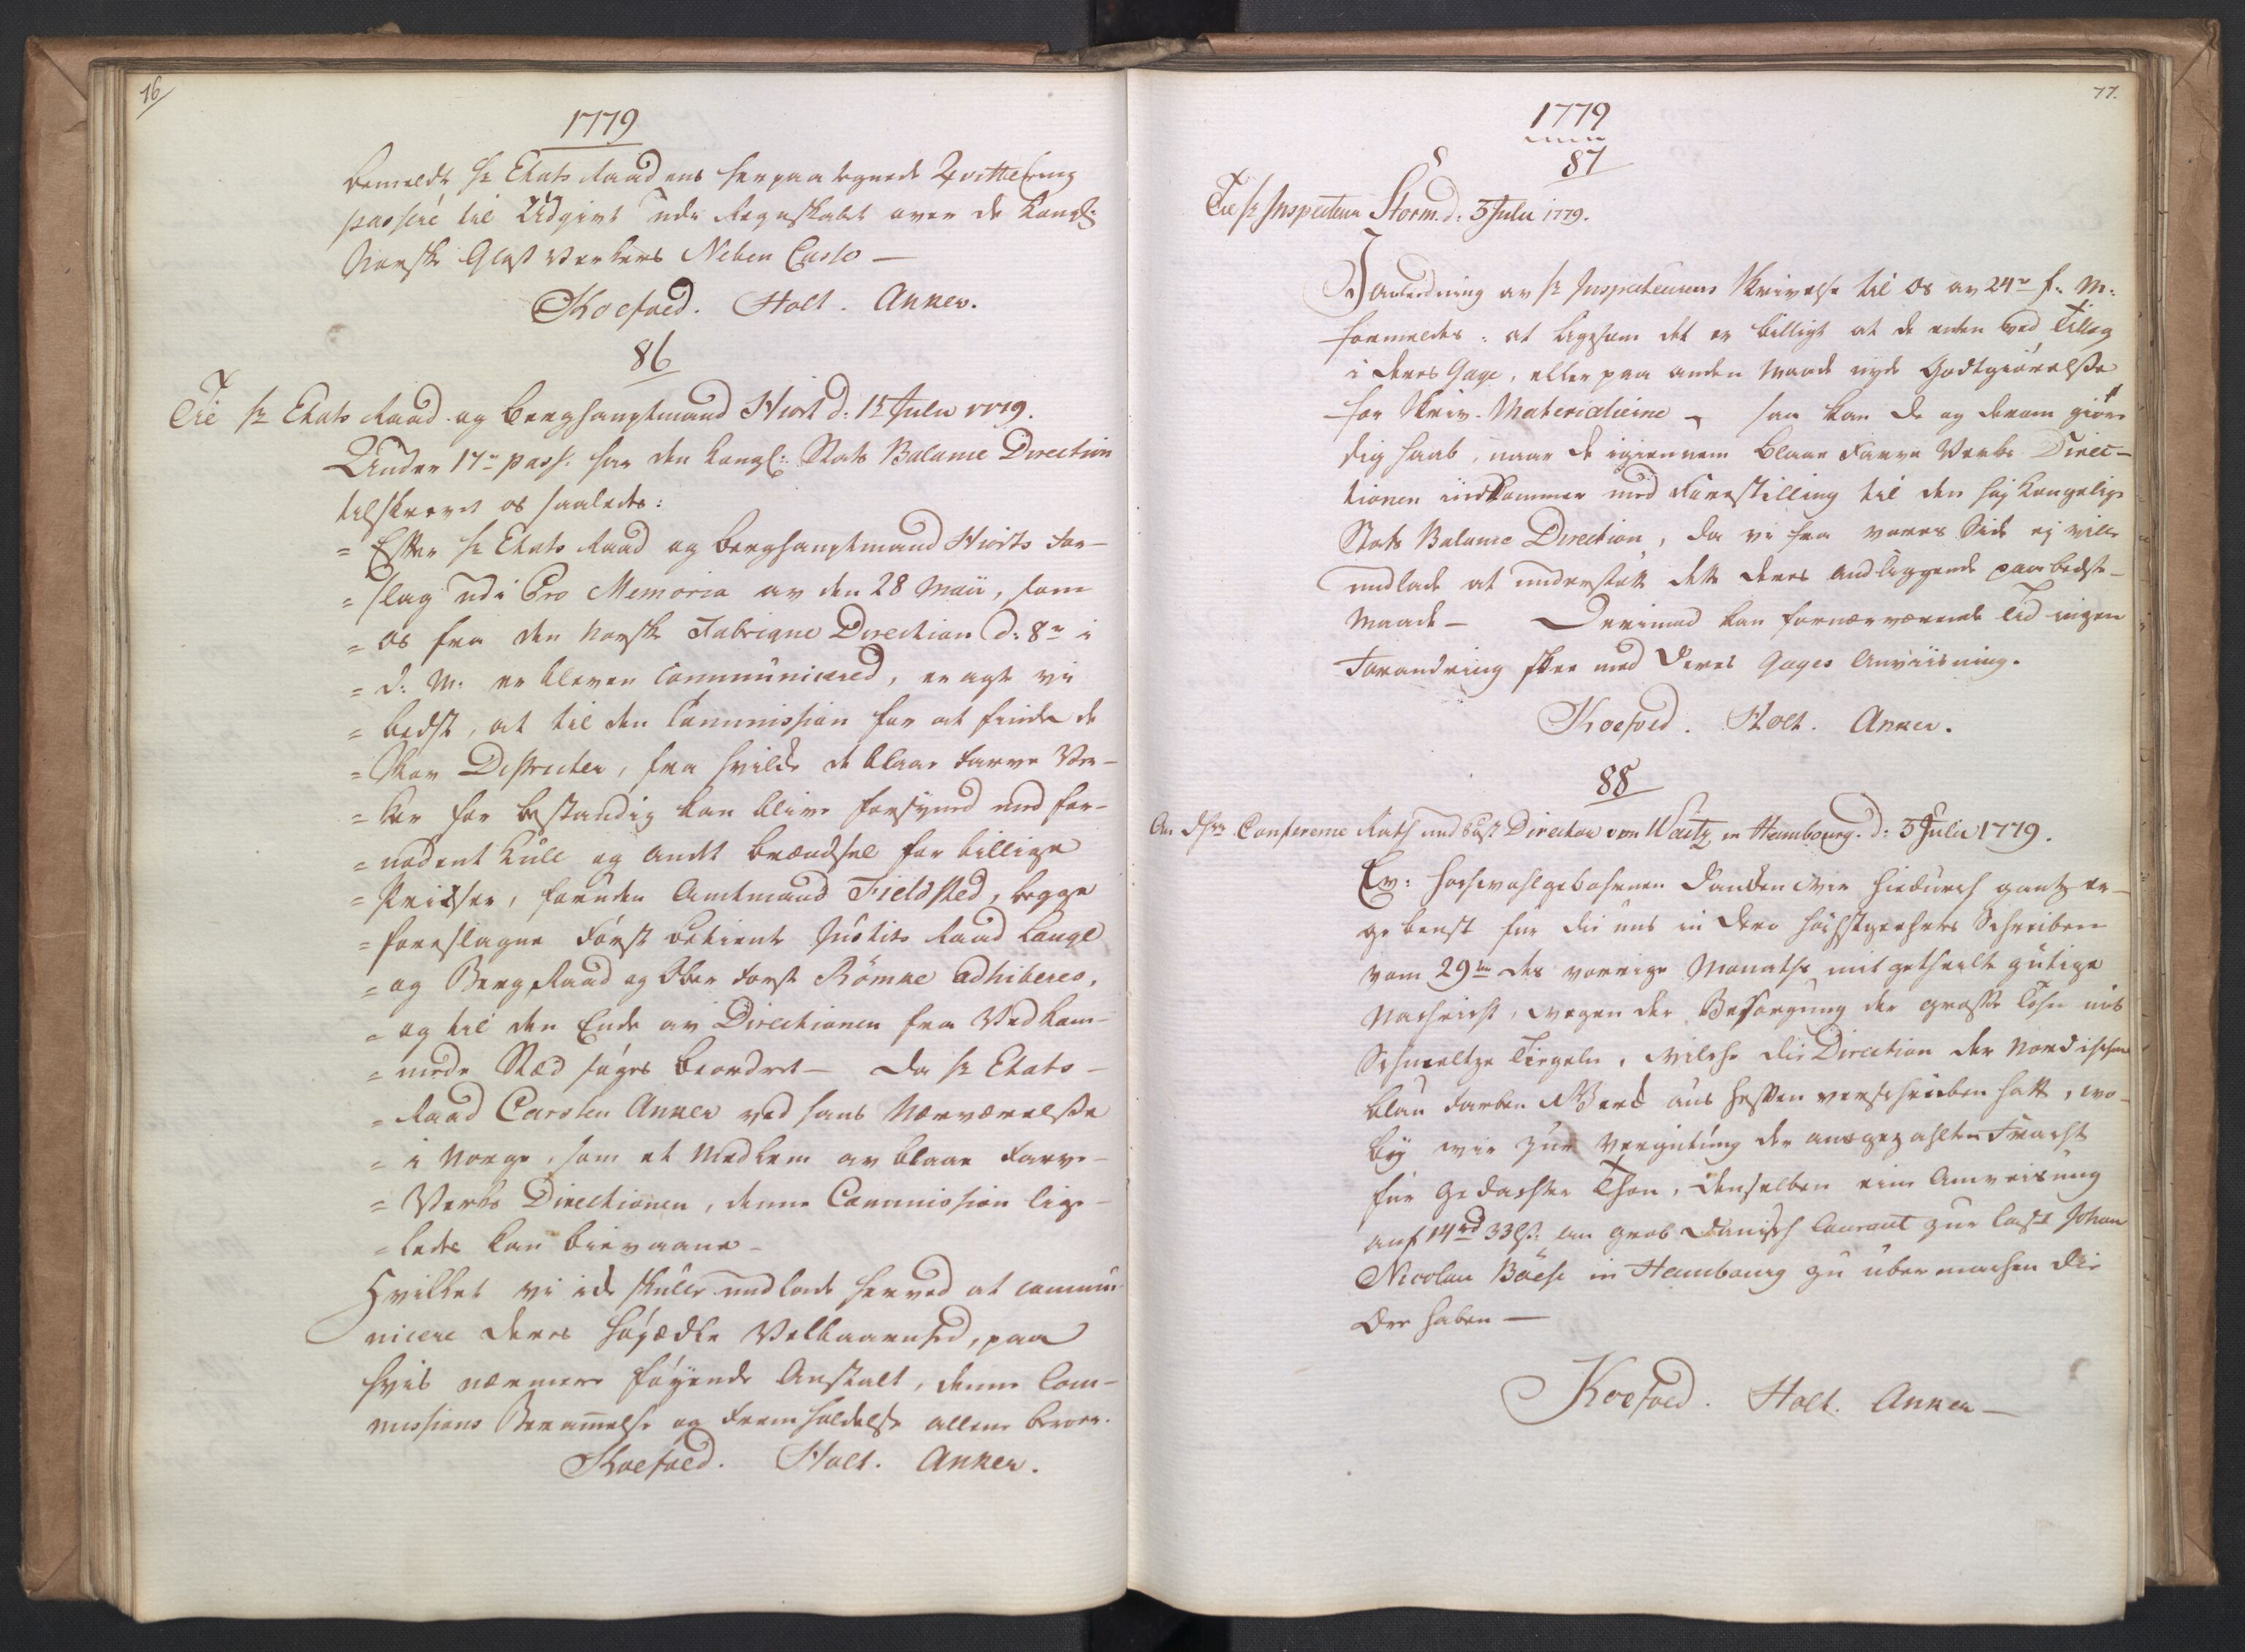 76
1779
bemeldte Hr Etats Raadens herpaa tegnede Qvittering
passere til Udgivt udi Regnskabet over de Kongl:
Norske Glas Verkers Neben Casse —
Koefoed. Holt. Anker.
86
Til Hr Etats Raad og Berghauptmand Hiort d: 1t Julii 1779.
Under 17de pass: har den Kongl: Stats Balance Direction
tilskrevet os saaledes:
= Efter Hr Etats Raad og Berghauptmand Hiorts For-
= slag udi Pro Memoria av den 28 Maii, som
= os fra den Norske Fabrique Direction d: 8de i
= d: M: er bleven communicered, eragte vi
= bedst, at til den Commission for at finde de
= Skov Districter, fra hvilke de blaae Farve Ver-
= ker for bestandig kan blive forsyned med for-
= nødent Kull og andet Brændsel for billige
= Priiser, foruden Amtmand Fieldsted, begge
= foreslagne Forst Betiente Justits Raad Lange
= og Berg Raad og Ober Forst Römke adhiberes,
= og til den Ende av Directionen fra Vedkom-
= mede Stæd søges beordret — da Hr Etats-
= Raad Carsten Anker ved hans Nærværelse
= i Norge, som et Medlem av blaae Farve-
= Verks Directionen, denne Commission lige-
= ledes kan bievaane —
Hvilket vi icke skulle undlade herved at commu-
nicere Deres Høyædle Velbaarenhed, paa
hvis nærmere føyende Anstalt, denne Com-
missions Berammelse og Fremholdelse allene beroer.
Koefoed. Holt. Anker.
77.
1779
87
Til Hr Inspecteur Storm. d: 3 Julii 1779.
I anledning av Hr Inspecteurens Skrivelse til os av 24de f: M:
formeldes: at ligesom det er billigt at de enten ved Tillæg
i deres Gage, eller paa anden Maade nyde Godtgiørelse
for Skriv-Materialierne, saa kan de og derom giøre
sig Haab, naar de igiennem Blaae Farve Verks Direc-
tionen indkommer med Forestilling til den høy Kongelige
Stats Balance Direction, da vi fra vores Side ej ville
undlade at understøtte dette deres andliggende paa bedste
Maade — Derimod kan for nærværende Tid ingen
Forandring skee med Deres Gages Anviisning.
Koefoed. Holt. Anker.
88
An Ihro Conference Rath und Directör von Waitz in Hambourg. d: 3 Julii 1779.
Ew: Hochwohlgebohrnen Dancken wir hiedurch gantz er-
gebenst für die uns in Dero höchstgeehrtes Schreiben
vom 29ten des vorrige Monaths mitgetheilte gütige
Nachricht, wegen der Besorgung der grosse Tohn
Schmeltze Tiegeln, welche die Direction der Nordischen
blau Farben Werck aus Hessen verschrieben hatt, wo-
bey wir zur Vergütung der ausgezahlten Fracht
für gedachten Thon, denselben eine Anweisung
auf 14 rd 33 ß: an grob Dänisch Courant zur Last Johan
Nicolau Böese in Hambourg zu übermachen die
Ehre haben —
Koefoed. Holt. Anker —